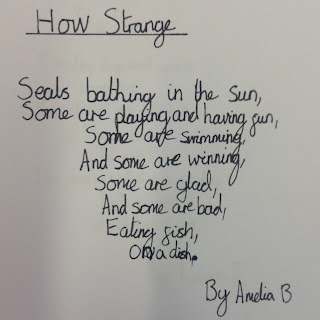 How Strange
Seals bathing in the sun,
Some are playing and having fun,
Some are swimming,
And some are winning,
Some are glad,
And some are bad,
Eating fish,
On a dish.
By Amelia B